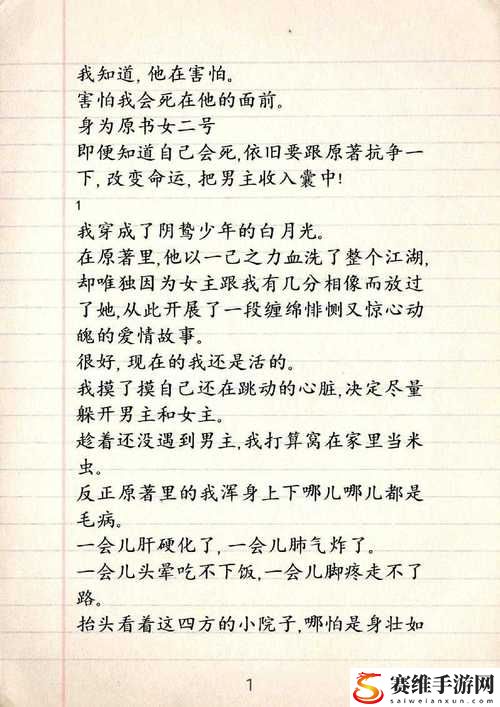 我知道,他在害怕。
害怕我会死在他的面前。
身为原书女二号
即便知道自己会死,依旧要跟原著抗争一
下,改变命运,把男主收入囊中!
1
我穿成了阴鸷少年的白月光。
在原著里,他以一己之力血洗了整个江湖,
却唯独因为女主跟我有几分相像而放过
了她,从此开展了一段缠绵悱恻又惊心动
魄的爱情故事。
很好,现在的我还是活的。
我摸了摸自己还在跳动的心脏,决定尽量
躲开男主和女主。
趁着还没遇到男主,我打算窝在家里当米
虫。
反正原著里的我浑身上下哪儿哪儿都是
毛病。
一会儿肝硬化了,一会儿肺气炸了。
一会儿头晕吃不下饭,一会儿脚疼走不了
路。
抬头看着这四方的小院子,哪怕是身壮如
1
赛维手游网
saiweianxun.com